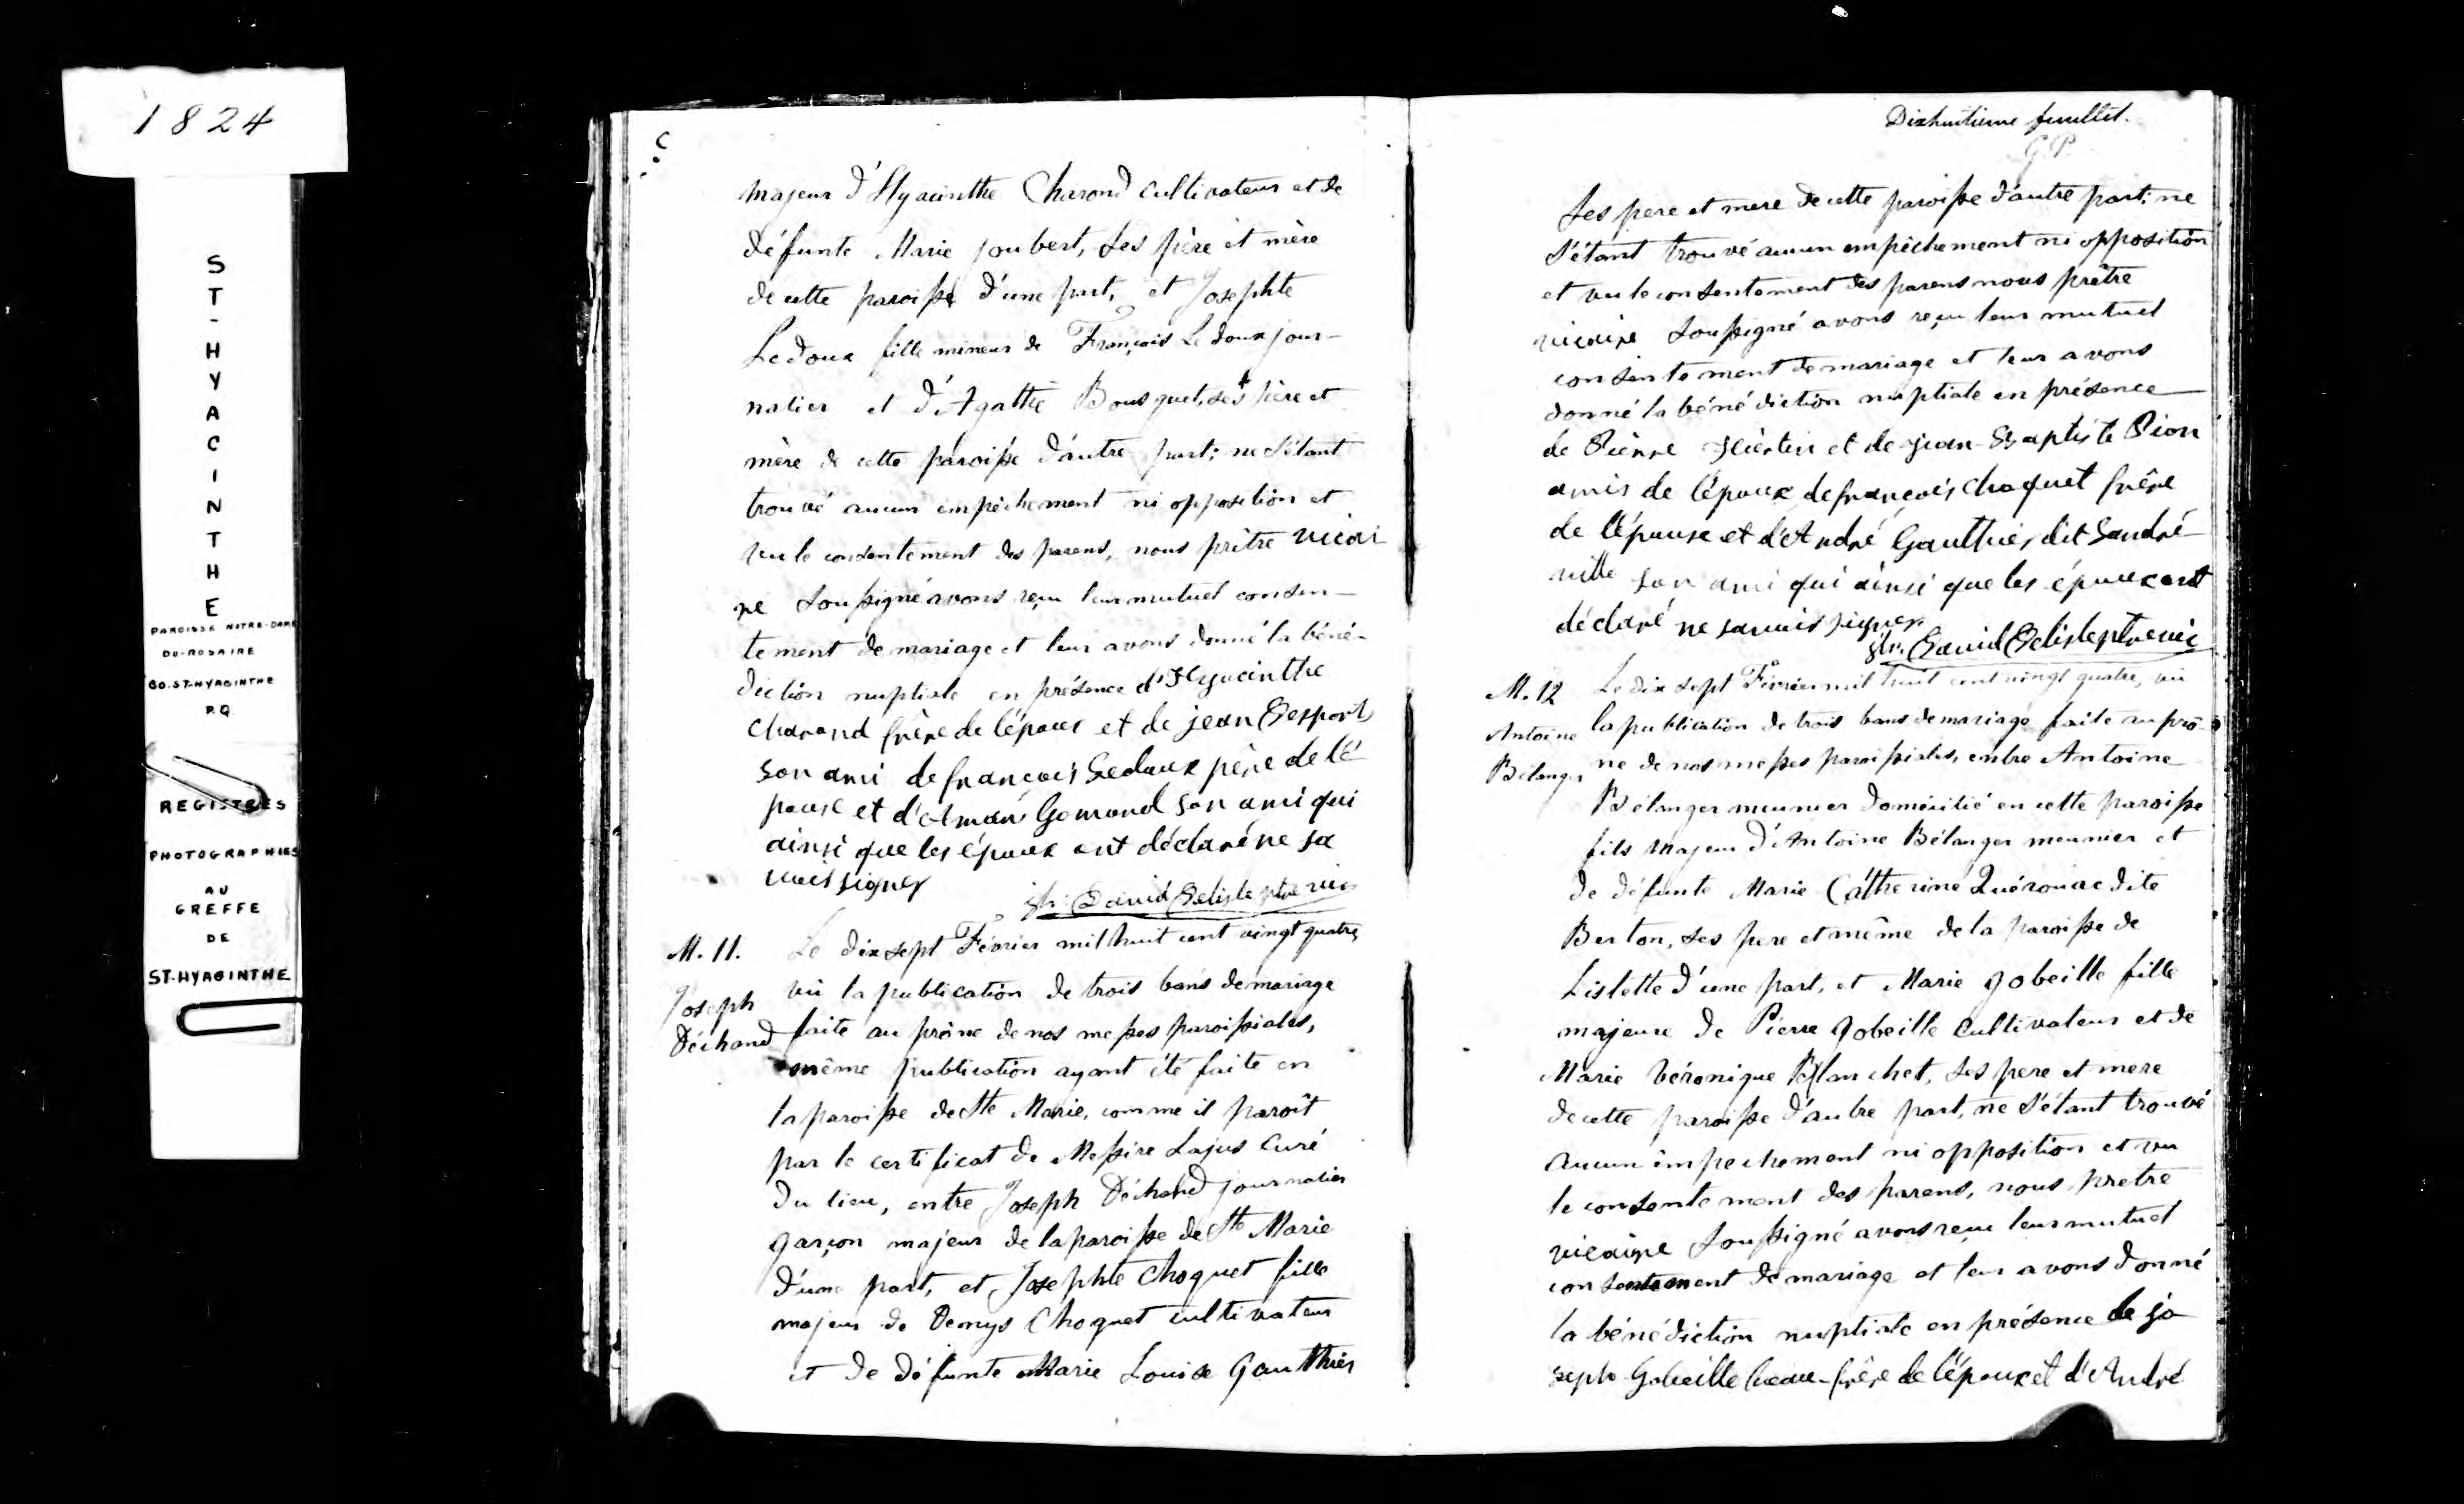 1824
S
T
-
H
Y
A
C
I
N
T
H
E
PAROISSE NOTRE-DAME
DU-ROSAIRE
CO. ST-HYACINTHE
P.Q.
REGISTRES
PHOTOGRAPHIES
AU
GREFFE
DE
ST-HYACINTHE
majeur d'Hyacinthe Charond cultivateur et de
défunte Marie Joubert, ses père et mère
de cette paroisse d'une part, et Josephte
Ledoux fille mineur de François Ledoux jour-
nalier et d'Agathe Bousquet, ses père et
mère de cette paroisse d'autre part; ne s'étant
trouvé aucun empêchement ni opposition et
vu le consentement des parens, nous prêtre vicai
re soussigné avons reçu leur mutuel consen-
tement de mariage et leur avons donné la béné-
diction nuptiale en présence d'Hyacinthe
Charond frère de l'époux et de jean Desport
son ami de françois Ledoux père de l'é
pouse et d'Aman Gemond son ami qui
ainsi que les époux ont déclaré ne sa
voir signer
David Delisle ptre vic
M. 11.
Joseph
Déchand
Le dix sept Février mil huit cent vingt quatre,
vû la publication de trois bans de mariage
faite au prône de nos messes paroissiales,
même publication ayant été faite en
la paroisse de Ste Marie, comme il paroît
par le certificat de Messire Lajus Curé
du lieu, entre Joseph Déchand journalier
garçon majeur de la paroisse de Ste Marie
d'une part, et Josephte Choquet fille
majeur de Denys Choquet cultivateur
et de défunte Marie Louise Gauthier
Dixhuitieme feuillet.
G.P.
ses pere et mere de cette paroisse d'autre part; ne
s'étant trouvé aucun empêchement ni opposition
et vu le consentement des parens nous prêtre
vicaire soussigné avons reçu leur mutuel
consentement de mariage et leur avons
donné la bénédiction nuptiale en présence
de Pierre et de jean-Baptiste Pion
amis de l'époux de françois choquet frère
de l'épouse et d'André Gauthier dit Landré-
ville son ami qui ainsi que les époux ont
déclaré ne savoir signer
David Delisle ptre vic
M. 12
Antoine
Bélanger
Le dix sept Février mil huit cent vingt quatre, vû
la publication de trois bans de mariage faite au prô-
ne de nos messes paroissiales, entre Antoine
Bélanger meunier domicilié en cette paroisse
fils majeur d'Antoine Bélanger meunier et
de défunte Marie Catherine Quérouac dite
Berton, ses pere et même de la paroisse de
Lislette d'une part, et Marie Gobeille fille
majeure de Pierre Gobeille cultivateur et de
Marie Véronique Blanchet, ses pere et mere
de cette paroisse d'autre part, ne s'étant trouvé
aucun empechement ni opposition et vu
le consentement des parens, nous prêtre
vicaire soussigné avons reçu leur mutuel
consentement de mariage et leur avons donné
la bénédiction nuptiale en présence de jo
seph Gobeille beau-frère de l'époux et d'André